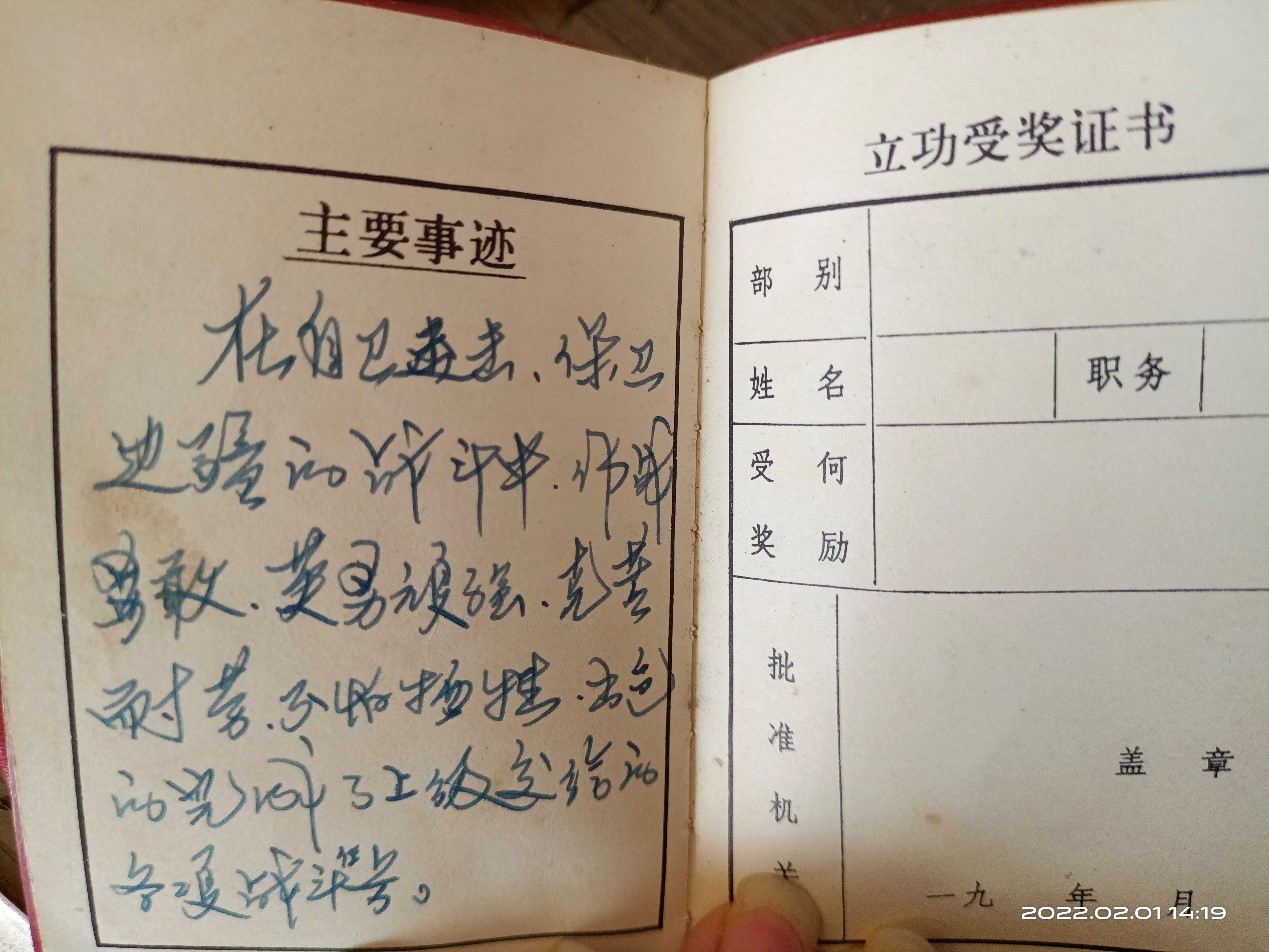 主要事迹
在自卫还击、保卫
边疆的战斗中，作战
勇敢、英勇顽强、克苦
耐劳、不怕牺牲、出色
的完成了上级交给的
各项战斗任务。
立功受奖证书
部别
姓名
职务
受何
奖励
批
准
机
关
盖章
一九 年 月
2022.02.01 14:19